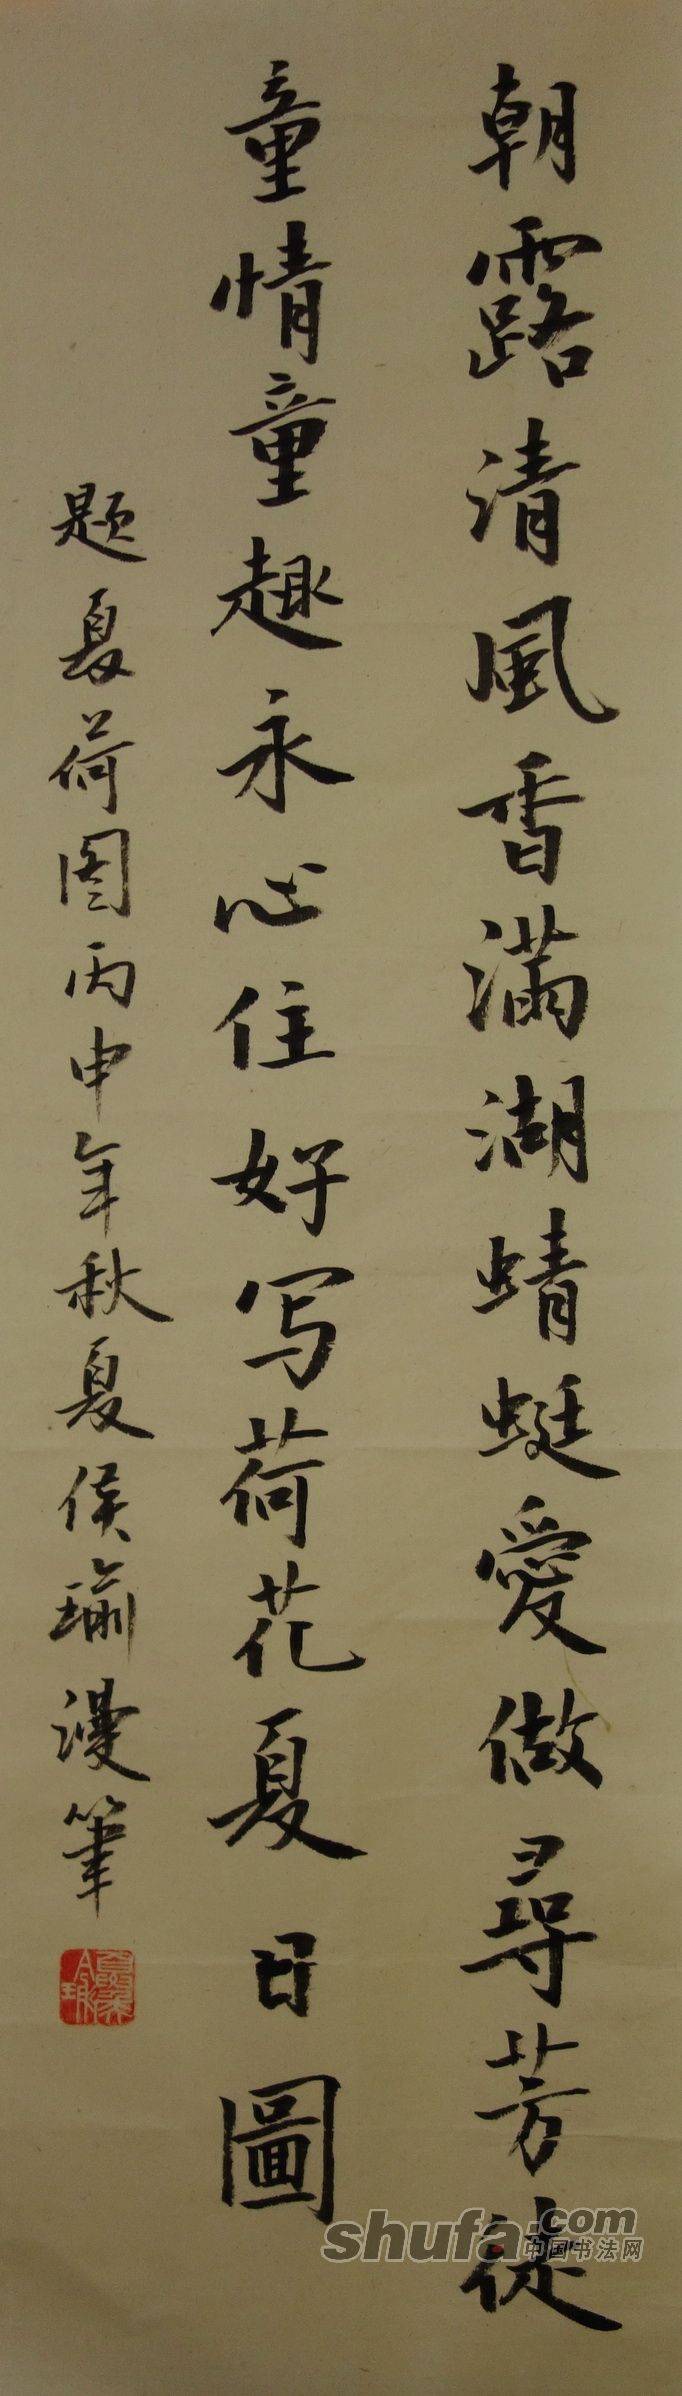 朝露清風香滿湖蜻蜓愛做尋芳徒
童情童趣永心住好写荷花夏日圖
题夏荷图丙申年秋夏侯瑜漫筆
shufa.com
中国书法网